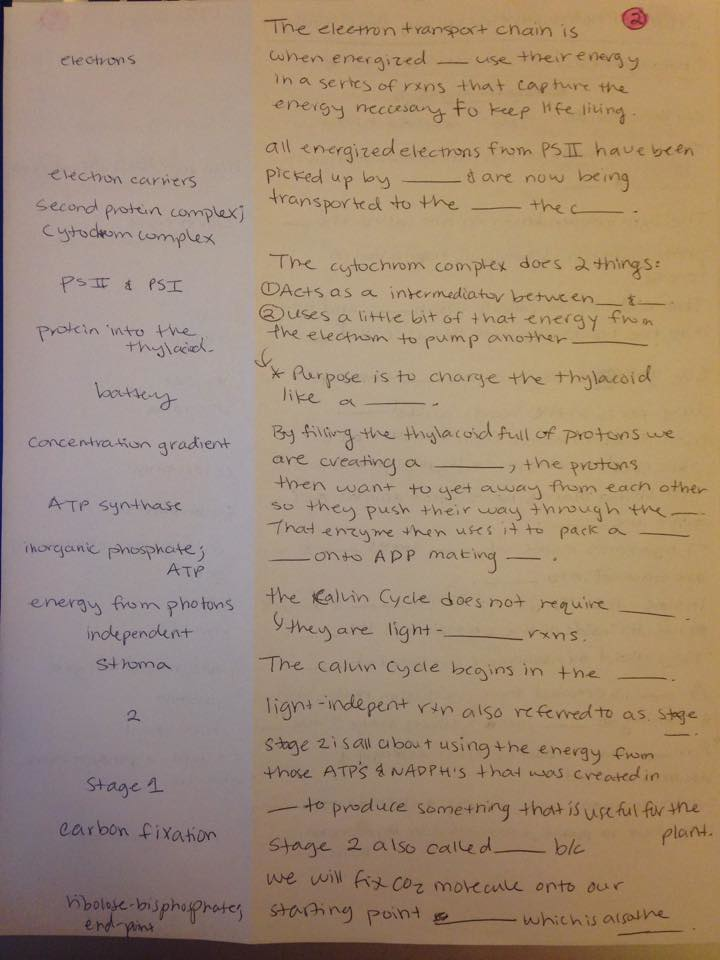 2
The electron transport chain is
electrons
when energized __ use their energy
in a series of rxns that capture the
energy neccesary to keep life living.
all energized electrons from PSII have been
electron carriers
picked up by ____ & are now being
second protein complex;
transported to the ____ the c____.
cytochrom complex
The cytochrom complex does 2 things:
PSII & PSI
① Acts as a intermediator between __ & __
② uses a little bit of that energy from
protein into the
thylacoid.
the electrom to pump another ______
* Purpose is to charge the thylacoid
battery
like a ____.
concentration gradient
By filling the thylacoid full of protons we
are creating a _____, the protons
then want to get away from each other
ATP synthase
so they push their way through the __.
That enzyme then uses it to pack a ____
inorganic phosphate;
ATP
___ onto ADP making ___.
energy from photons
the Calvin Cycle does not require ____
independent
they are light-_____ rxns.
stroma
The calvin cycle begins in the ____.
2
light-indepent rxn also referred to as stage
__.
stage 2 is all about using the energy from
those ATP's & NADPH's that was created in
stage 1
__ to produce something that is useful for the
plant.
carbon fixation
stage 2 also called ____ b/c
we will fix CO2 molecule onto our
ribolose-bisphosphate;
end-point
starting point _____ which is also the
____